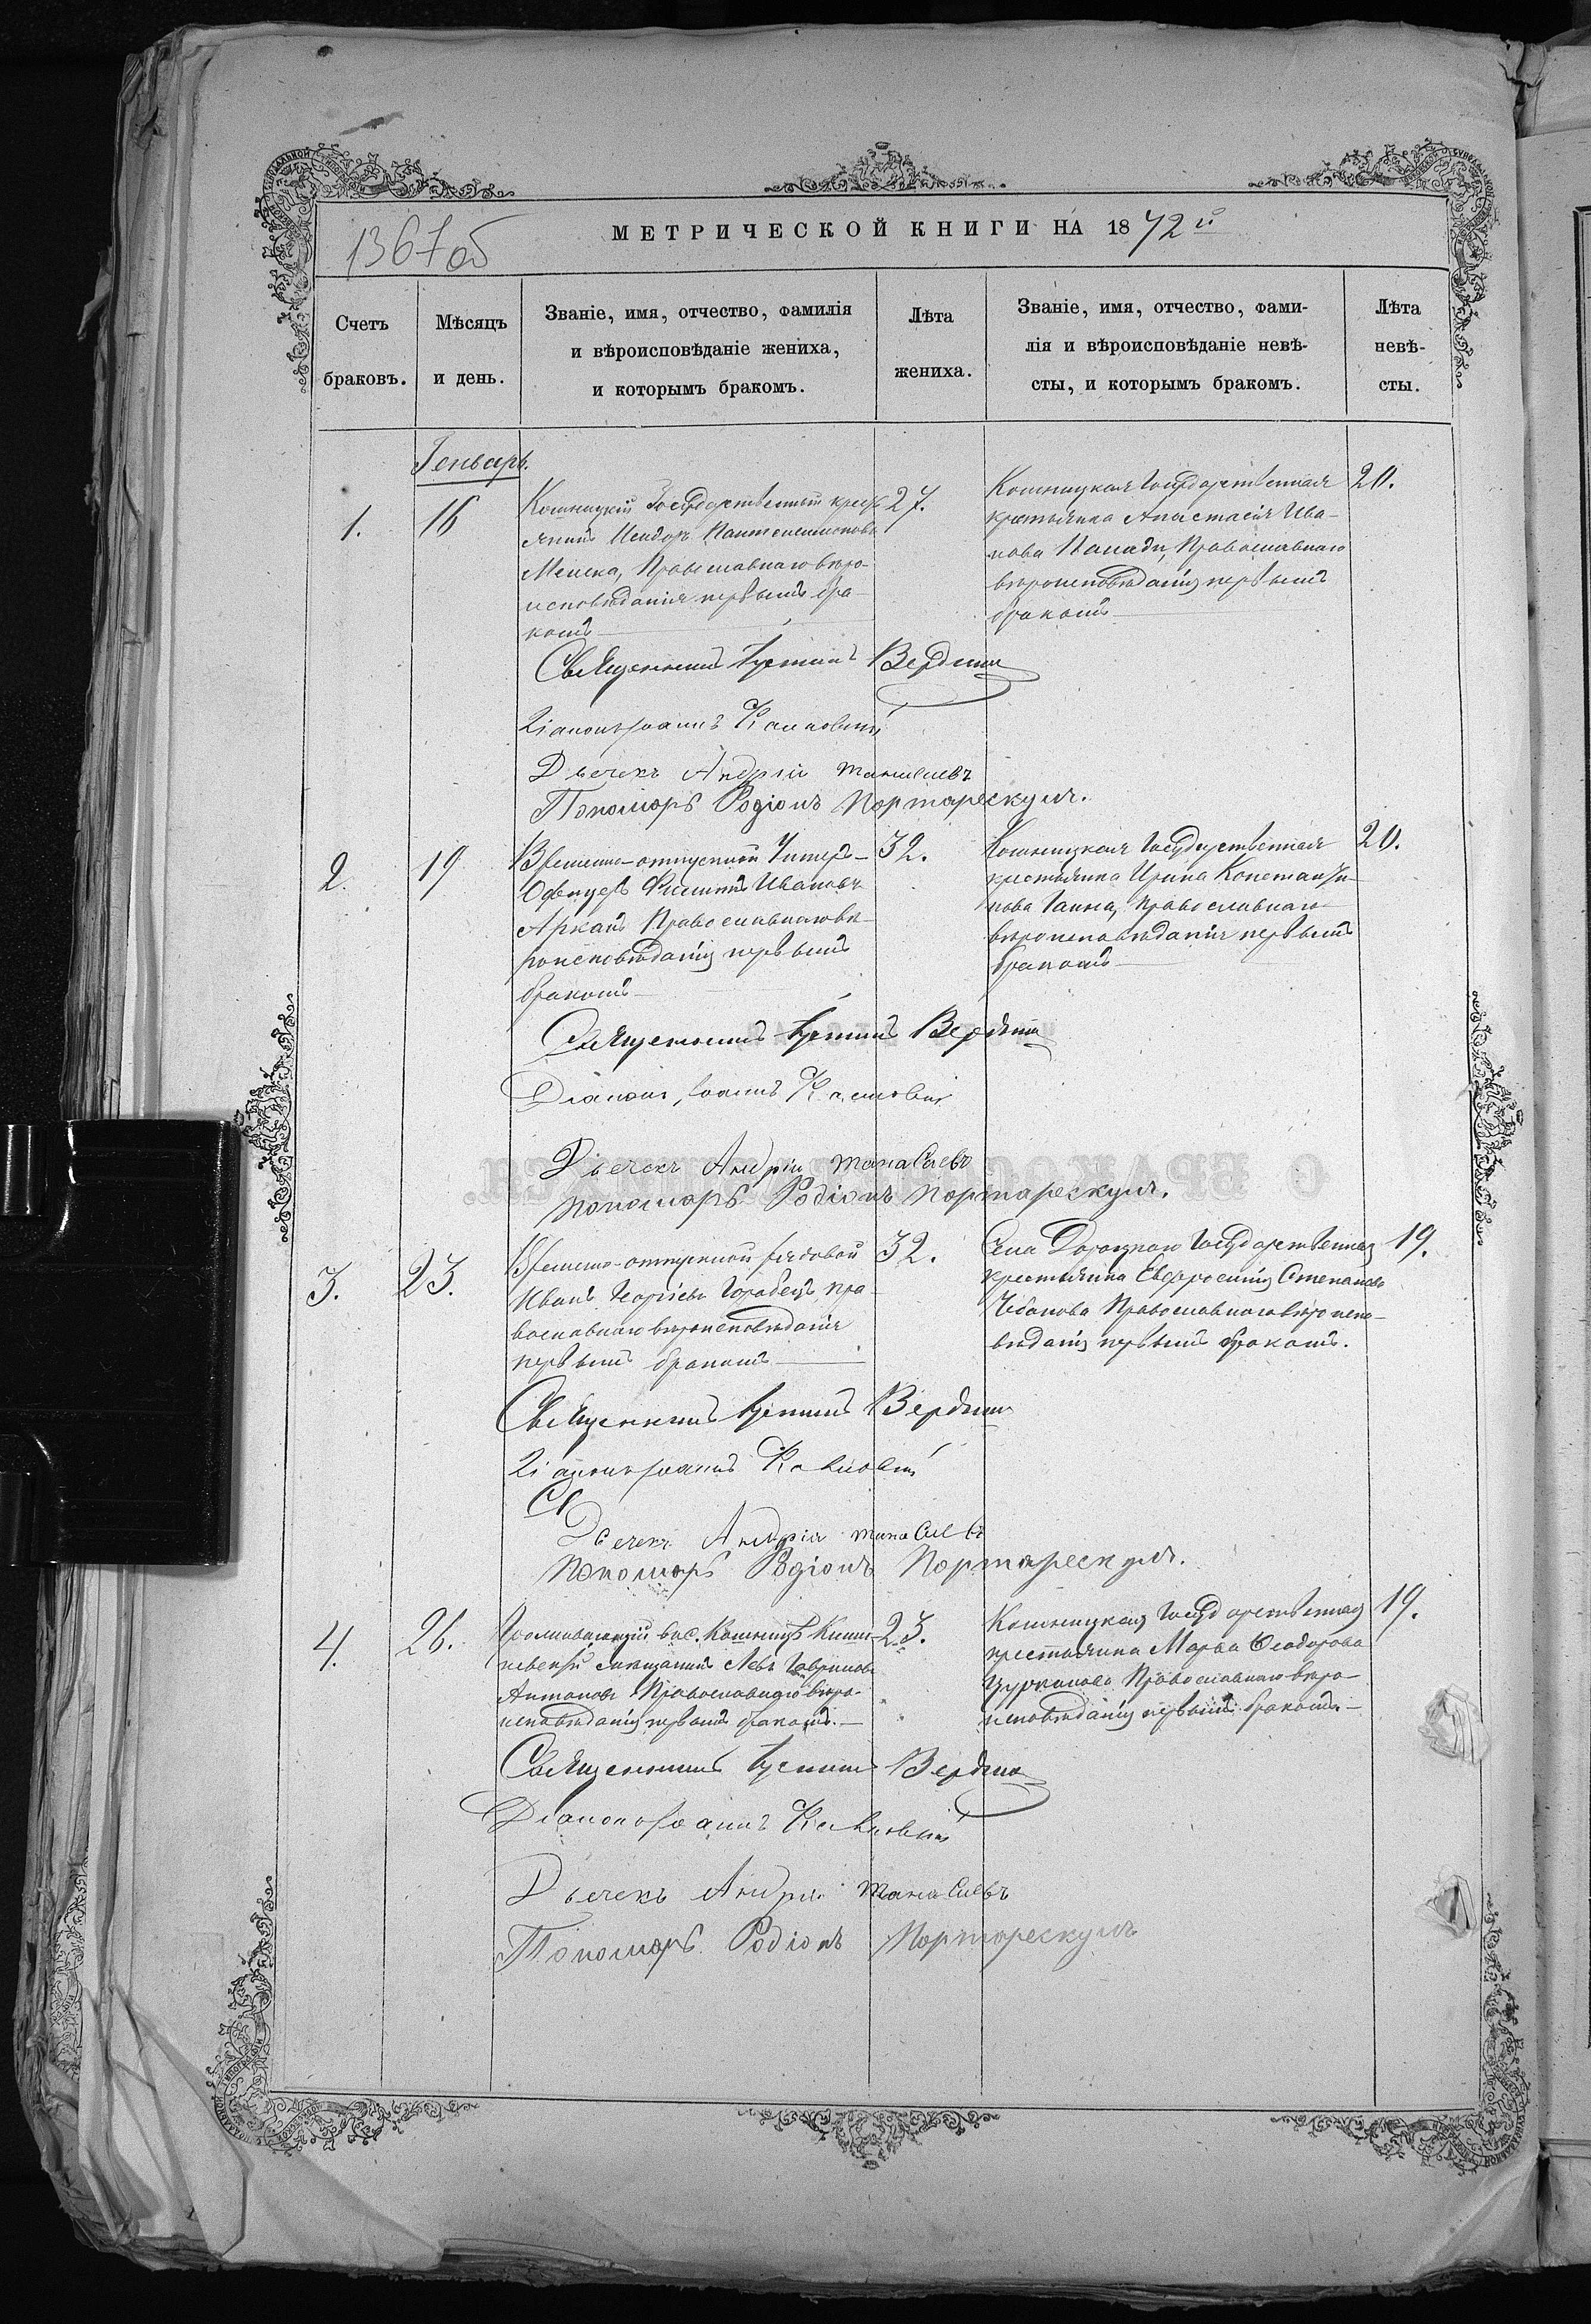 МЕТРИЧЕСКОЙ КНИГИ НА 1872й
1367об
Счетъ
браковъ.
Мѣсяцъ
и день.
Званіе, имя, отчество, фамилія
и вѣроисповѣданіе жениха,
и которымъ бракомъ.
Лѣта
жениха.
Званіе, имя, отчество, фами-
лія и вѣроисповѣданіе невѣ-
сты, и которымъ бракомъ.
Лѣта
невѣ-
сты.
Генварь.
1.
16
Кошницкій Государственный кресть
янинъ Исидоръ Пантелеимоновъ
Православнаго вѣро-
исповѣданія первымъ бра-
комъ
27.
Кошницкая Государственная
крестьянка Анастасія Ива-
нова Православнаго
вѣроисповѣданія первымъ
бракомъ
20.
Священникъ Іустинъ Вердыш
Діаконъ Іоаннъ
Дьячекъ Андрій Танасиевъ
Пономарь Родіонъ Портарескулъ.
2.
19
Временно-отпускной Унтеръ-
Офицеръ Филиппъ Ивановъ
Арканъ Православнаго вѣ-
роисповѣданія первымъ
бракомъ
32.
Кошницкая Государственная
крестьянка Ирина Константи-
нова Ганжа, православнаго
вѣроисповѣданія первымъ
бракомъ
20.
Священникъ Іустинъ Вердыш
Діаконъ Іоаннъ
Дьячекъ Андрій Танасиевъ
Пономарь Родіонъ Портарескулъ.
3.
23.
Временно-отпускной рядовой
Иванъ Георгіевъ Горобецъ, пра-
вославнаго вѣроисповѣданія
первымъ бракомъ
32.
Села Дороцкаго Государственная
крестьянка Евфросинія Степанова
Чебанова Православнаго вѣроиспо-
вѣданія первымъ бракомъ.
19.
Священникъ Іустинъ Вердыш
Діаконъ Іоаннъ
Дьячекъ Андрій Танасиевъ
Пономарь Родіонъ Портарескулъ.
4.
26.
Проживающій въ с. Кошницѣ Киши-
невскій мѣщанинъ Левъ Гавриловъ
Антоновъ Православнаго вѣро-
исповѣданія первымъ бракомъ.
23.
Кошницкая Государственная
крестьянка Марѳа Ѳеодорова
Цурканова Православнаго вѣро-
исповѣданія первымъ бракомъ
19.
Священникъ Іустинъ Вердыш
Діаконъ Іоаннъ
Дьячекъ Андрій Танасиевъ
Пономарь Родіонъ Портарескулъ